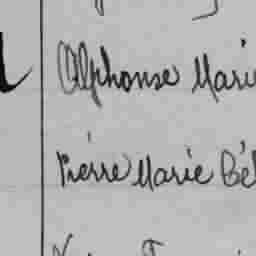 Alphonse Marie
Pierre Marie Bél